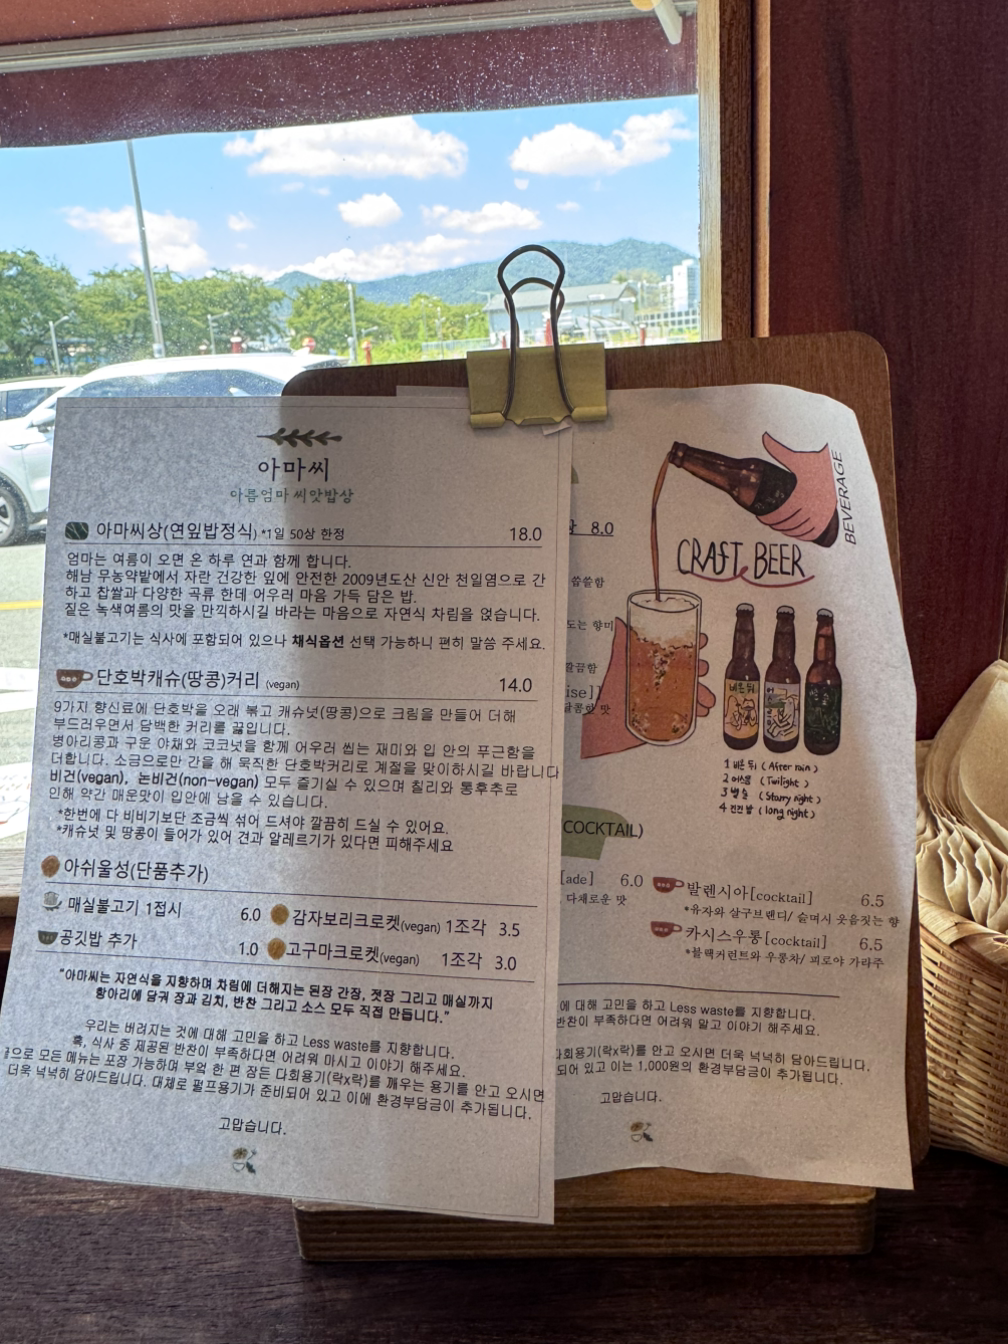 아마씨
아름엄마 씨앗밥상
아마씨상(연잎밥정식) *1일 50상 한정 18.0
엄마는 여름이 오면 온 하루 연과 함께 합니다.
해남 무농약밭에서 자란 건강한 잎에 안전한 2009년도산 신안 천일염으로 간
하고 찹쌀과 다양한 곡류 한데 어우러 마음 가득 담은 밥.
짙은 녹색여름의 맛을 만끽하시길 바라는 마음으로 자연식 차림을 얹습니다.
*매실불고기는 식사에 포함되어 있으나 채식옵션 선택 가능하니 편히 말씀 주세요.
단호박캐슈(땅콩)커리 (vegan) 14.0
9가지 향신료에 단호박을 오래 볶고 캐슈넛(땅콩)으로 크림을 만들어 더해
부드러우면서 담백한 커리를 끓입니다.
병아리콩과 구운 야채와 코코넛을 함께 어우러 씹는 재미와 입 안의 푸근함을
더합니다. 소금으로만 간을 해 묵직한 단호박커리로 계절을 맞이하시길 바랍니다
비건(vegan), 논비건(non-vegan) 모두 즐기실 수 있으며 칠리와 통후추로
인해 약간 매운맛이 입안에 남을 수 있습니다.
*한번에 다 비비기보단 조금씩 섞어 드셔야 깔끔히 드실 수 있어요.
*캐슈넛 및 땅콩이 들어가 있어 견과 알레르기가 있다면 피해주세요
아쉬울성(단품추가)
매실불고기 1접시 6.0 감자보리크로켓(vegan) 1조각 3.5
공깃밥 추가 1.0 고구마크로켓(vegan) 1조각 3.0
"아마씨는 자연식을 지향하며 차림에 더해지는 된장 간장, 젓장 그리고 매실까지
항아리에 담궈 장과 김치, 반찬 그리고 소스 모두 직접 만듭니다."
우리는 버려지는 것에 대해 고민을 하고 Less waste를 지향합니다.
혹, 식사 중 제공된 반찬이 부족하다면 어려워 마시고 이야기 해주세요.
으로 모든 메뉴는 포장 가능하며 부엌 한 편 잠든 다회용기(락x락)를 깨우는 용기를 안고 오시면
더욱 넉넉히 담아드립니다. 대체로 펄프용기가 준비되어 있고 이에 환경부담금이 추가됩니다.
고맙습니다.
BEVERAGE
8.0
CRAFT BEER
씁쓸함
도는 향미
깔끔함
ise]]
달콤한 맛
비온뒤
1 비온 뒤 (After rain)
2 어스름 (Twilight)
3 별 숲 (Starry night)
4 긴긴 밤 (long night)
COCKTAIL)
[ade] 6.0
다채로운 맛
발렌시아[cocktail] 6.5
*유자와 살구브랜디/ 숨며시 웃음짓는 향
카시스우롱[cocktail] 6.5
*블랙커런트와 우롱차/ 피로야 가라주
에 대해 고민을 하고 Less waste를 지향합니다.
반찬이 부족하다면 어려워 말고 이야기 해주세요.
다회용기(락x락)를 안고 오시면 더욱 넉넉히 담아드립니다.
되어 있고 이는 1,000원의 환경부담금이 추가됩니다.
고맙습니다.